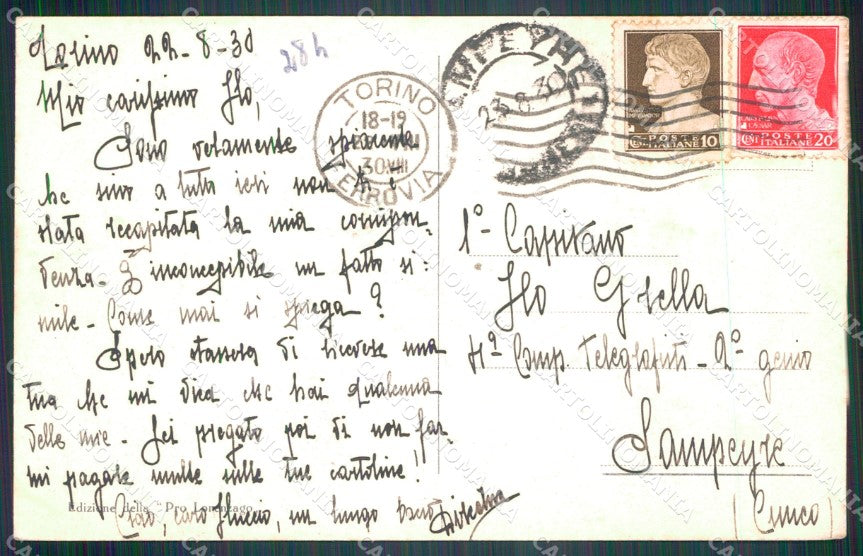 Torino 22-8-30
28 h
Mio carissimo Ilo,
Sono vetamente spiacente
che sino a tutto ieri non ti è
stata recapitata la mia corrispon-
denza - È inconcepibile un fatto si-
mile - Come mai si spiega?
Spero stasera di ricevere una
tua che mi dica che hai qualcuna
delle mie - Sei pregato poi di non far-
mi pagare multe sulle tue cartoline!
Ciao, caro Iluccio, un lungo bacio
Edizione della "Pro Lorenzago
TORINO
18-19
30 VIII
FERROVIA
23.8.30
POSTE
ITALIANE 10
POSTE
ITALIANE 20
1º Capitano
Ilo Gisella
Comp. Telegrafisti - 2º genio
Sampeyre
(Cuneo)
CARTOLINOMANIA